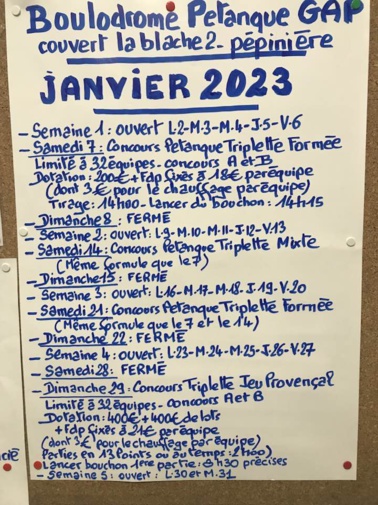 Boulodrome Petanque GAP
couvert la blache 2 - pépinière
JANVIER 2023
- Semaine 1 : ouvert L.2-M.3-M.4-J.5-V.6
- Samedi 7 : Concours Petanque Triplette Formée
Limité à 32 équipes - concours A et B
Dotation : 200€ + Fdp fixés à 18€ par équipe
(dont 3€ pour le chauffage par équipe)
Tirage : 14h00 - Lancer du bouchon : 14h15
- Dimanche 8 : FERMÉ
- Semaine 2 : ouvert : L.9-M.10-M.11-J.12-V.13
- Samedi 14 : Concours Petanque Triplette Mixte
(Même formule que le 7)
- Dimanche 15 : FERMÉ
- Semaine 3 : ouvert : L.16-M.17-M.18.J.19-V.20
- Samedi 21 : Concours Petanque Triplette Formée
(Même formule que le 7 et le 14)
- Dimanche 22 : FERMÉ
- Semaine 4 : ouvert : L.23-M.24-M.25-J.26-V.27
- Samedi 28 : FERMÉ
- Dimanche 29 : Concours Triplette Jeu Provençal
Limité à 32 équipes - concours A et B
Dotation : 400€ + 400€ de lots
+ Fdp fixés à 21€ par équipe
(dont 3€ pour le chauffage par équipe)
Parties en 13 Points ou au temps : 2h00)
Lancer bouchon 1ère partie : 8h30 précises
- Semaine 5 : ouvert : L.30 et M.31